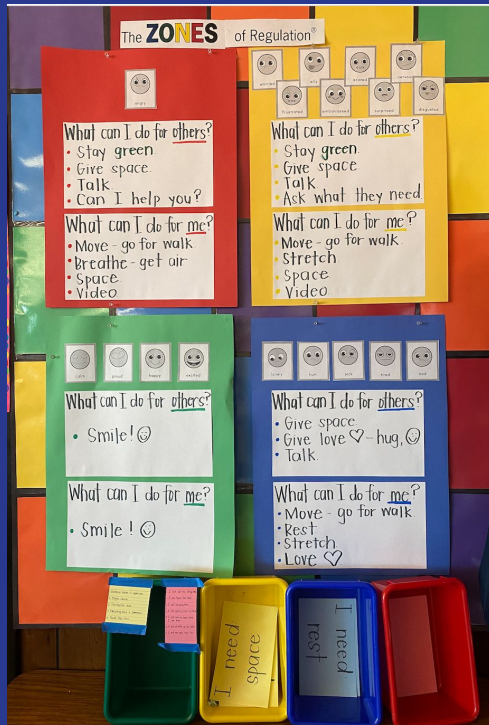 The ZONES of Regulation®
angry
What can I do for others?
• Stay green.
• Give space.
• Talk.
• Can I help you?
What can I do for me?
• Move - go for walk.
• Breathe - get air
• Space
• Video
worried
silly
frustrated
embarrassed
surprised
disgusted
What can I do for others?
• Stay green.
• Give space
• Talk
• Ask what they need.
What can I do for me?
• Move - go for walk.
• Stretch
• Space
• Video
calm
proud
happy
excited
What can I do for others?
• Smile! ☺
What can I do for me?
• Smile! ☺
lonely
hurt
sick
tired
sad
What can I do for others?
• Give space
• Give love ♡ - hug, ☺
• Talk.
What can I do for me?
• Move - go for walk.
• Rest
• Stretch
• Love ♡
I need
space
I need
rest